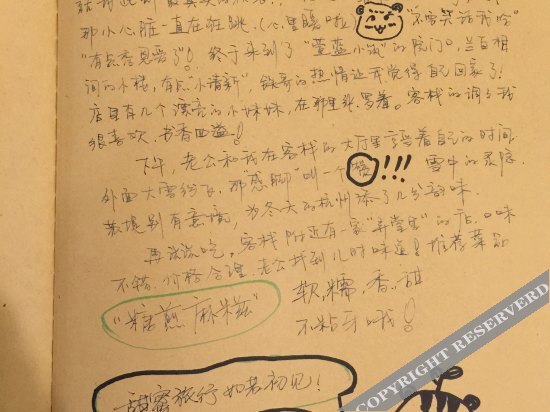 那小心脏一直在狂跳.(心里暖啦 "不要笑话我哈
"有点秀恩爱了"! 终于来到了"莹蓝小筑"的院门. 兰白相
间的小楼, 有点"小清新" 铁哥的热情让我觉得自己回家了!
店里有几个漂亮的小妹妹, 在那里张罗着. 客栈的调调我
很喜欢. 书香四溢!
下午, 老公和我在客栈的大厅里享受着自己的时间.
外面大雪纷飞, 那"感脚"叫一个 !!! 雪中的灵隐.
苏堤别有意境, 为冬天的杭州添了几分韵味
再说说吃. 客栈附近有一家"弄堂里"的店. 口味
不错. 价格合理. 老公找到儿时味道! 推荐菜品
"糖煎麻糍" 软, 糯, 香, 甜
不粘牙哦!
甜蜜旅行 如若初见!
COPYRIGHT RESERVED